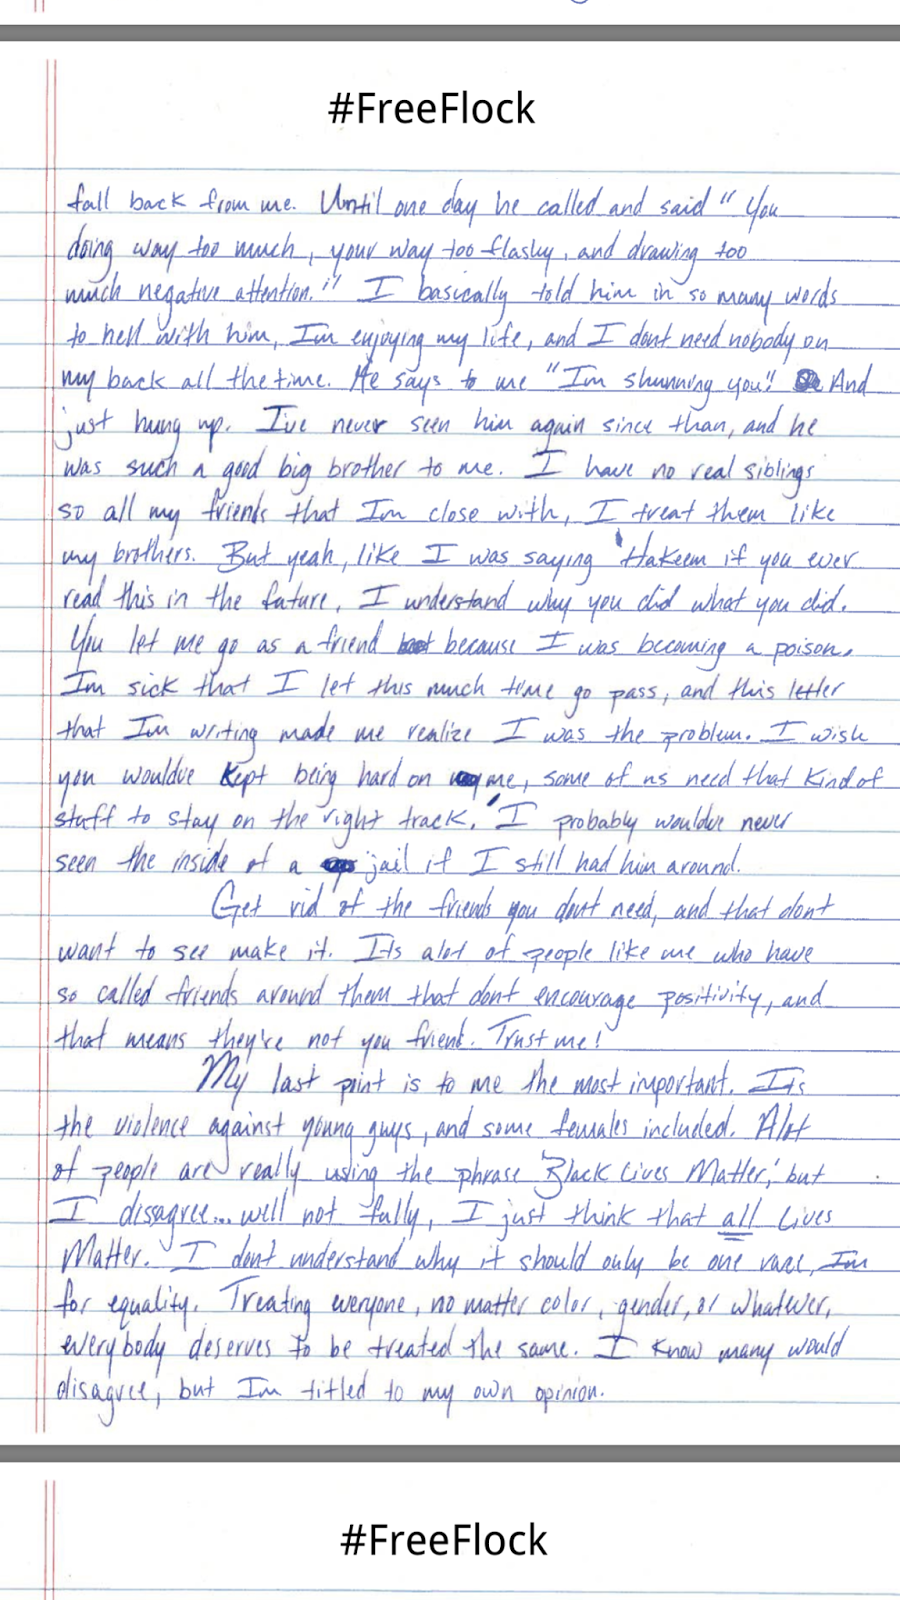 #FreeFlock
fall back from me. Until one day he called and said "You
doing way too much, your way too flashy, and drawing too
much negative attention." I basically told him in so many words
to hell with him, Im enjoying my life, and I dont need nobody on
my back all the time. He says to me "Im shunning you!" And
just hung up. I've never seen him again since than, and he
was such a good big brother to me. I have no real siblings
so all my friends that Im close with, I treat them like
my brothers. But yeah, like I was saying 'Hakeem if you ever
read this in the future, I understand why you did what you did.
You let me go as a friend because I was becoming a poison.
Im sick that I let this much time go pass, and this letter
that Im writing made me realize I was the problem. I wish
you wouldve kept being hard on me, some of us need that kind of
stuff to stay on the right track.' I probably wouldve never
seen the inside of a jail if I still had him around.
Get rid of the friends you dont need, and that dont
want to see make it. Its alot of people like me who have
so called friends around them that dont encourage positivity, and
that means they're not you friend. Trust me!
My last point is to me the most important. Its
the violence against young guys, and some females included. Alot
of people are really using the phrase 'Black Lives Matter,' but
I disagree... well not fully, I just think that all Lives
Matter. I dont understand why it should only be one race, Im
for equality. Treating everyone, no matter color, gender, or whatever,
everybody deserves to be treated the same. I know many would
disagree, but Im titled to my own opinion.
#FreeFlock